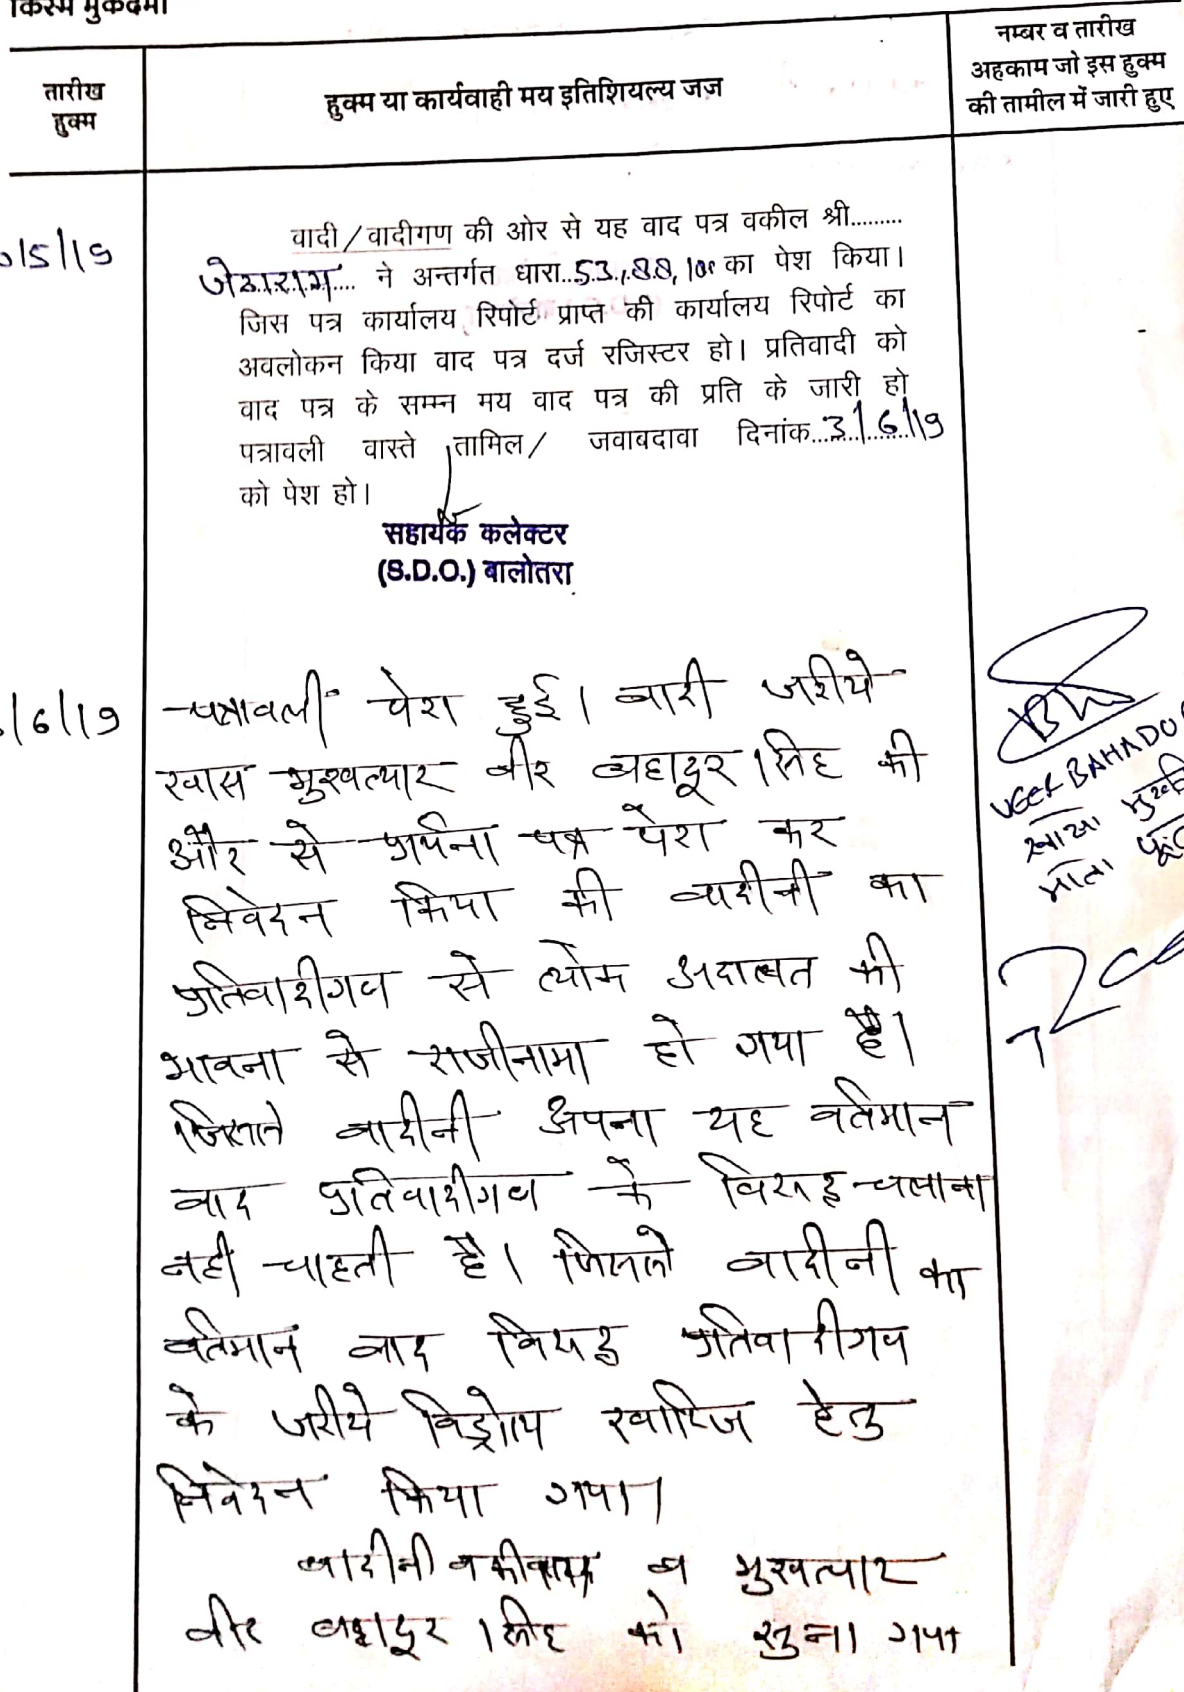 किस्म मुकदमा
तारीख
हुक्म
हुक्म या कार्यवाही मय इतिशियल्य जज
नम्बर व तारीख
अहकाम जो इस हुक्म
की तामील में जारी हुए
वादी/वादीगण की ओर से यह वाद पत्र वकील श्री.........
/5/19
जेठाराम.... ने अन्तर्गत धारा..53,88,188 का पेश किया।
जिस पत्र कार्यालय रिपोर्ट प्राप्त की कार्यालय रिपोर्ट का
अवलोकन किया वाद पत्र दर्ज रजिस्टर हो। प्रतिवादी को
वाद पत्र के सम्म्न मय वाद पत्र की प्रति के जारी हो
पत्रावली वास्ते तामिल/ जवाबदावा दिनांक...3/6/19
को पेश हो।
सहायक कलेक्टर
(S.D.O.) बालोतरा
/6/19
पत्रावली पेश हुई। वादी जरीये
खास मुखत्यार वीर बहादूर सिंह की
और से प्रार्थना पत्र पेश कर
निवेदन किया की वादीनी का
प्रतिवादीगण से लोक अदालत की
भावना से राजीनामा हो गया है।
जिससे वादीनी अपना यह वर्तमान
वाद प्रतिवादीगण के विरूद्ध चलाना
नही चाहती है। जिससे वादीनी का
वर्तमान वाद विरूद्ध प्रतिवादीगण
के जरीये विड्रोय खारिज हेतु
निवेदन किया गया।
वादीनी वकील व मुखत्यार
वीर बहादूर सिंह को सुना गया
Veer BAHADU
माता